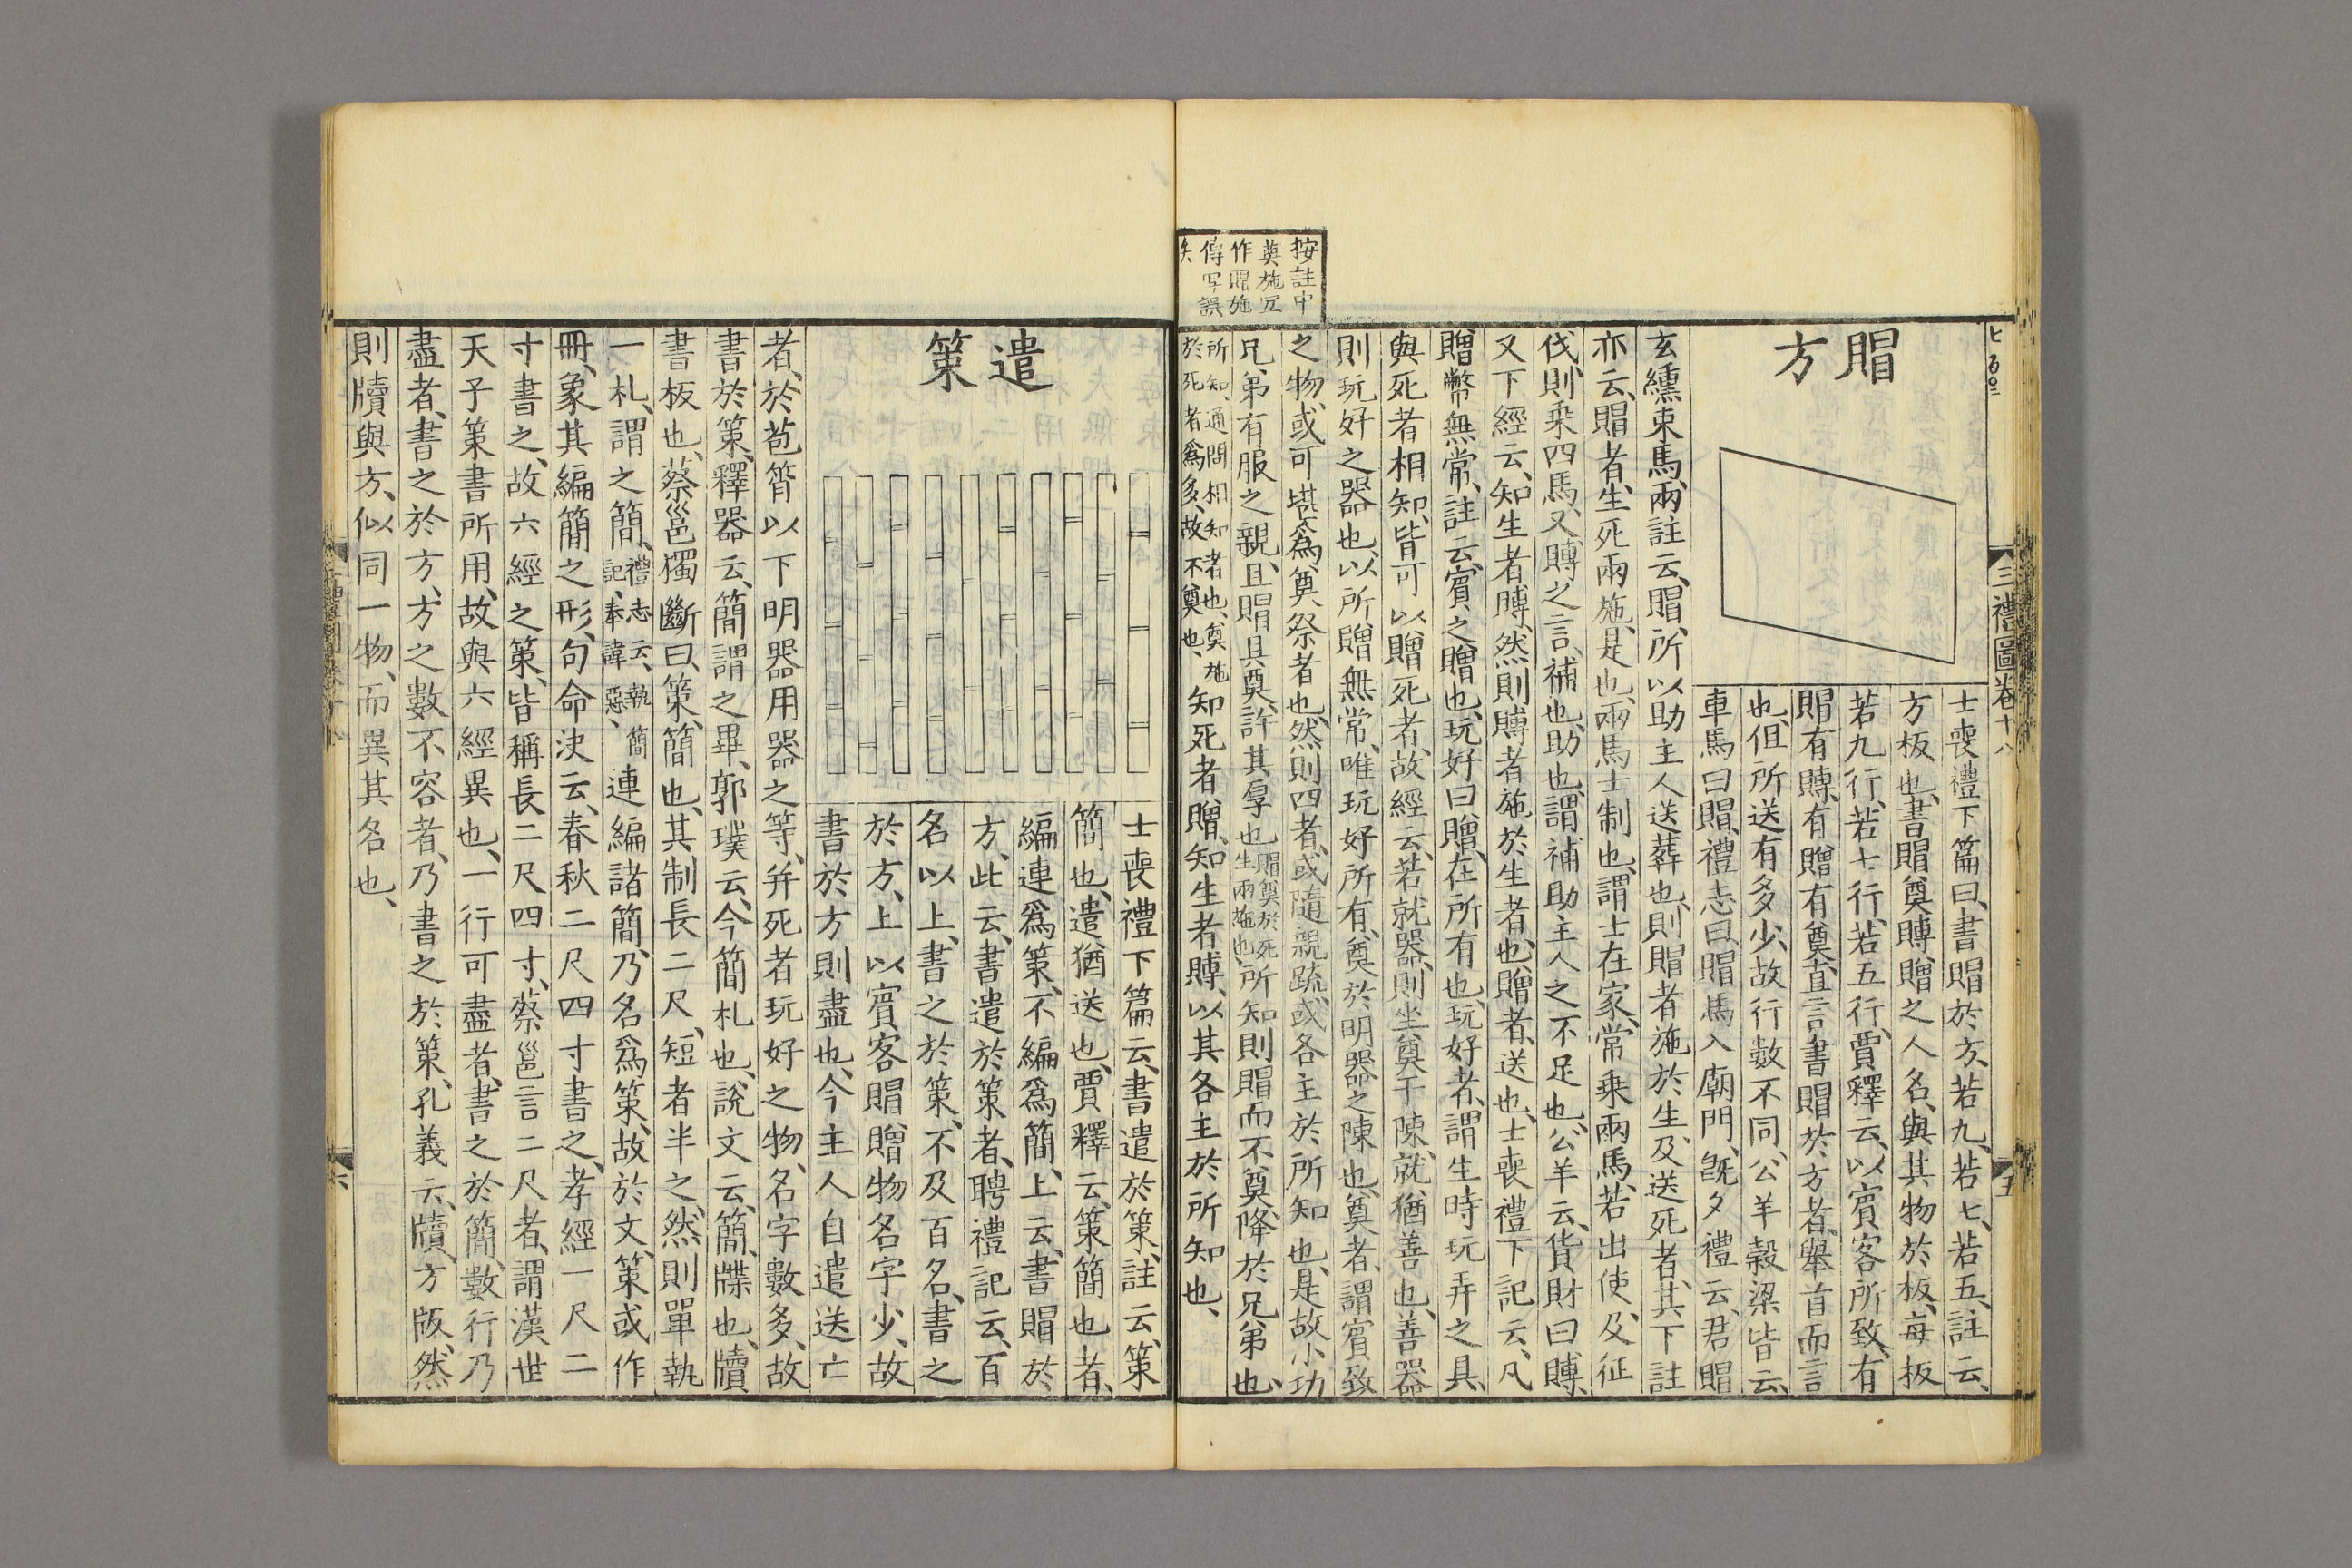 三禮圖卷十八
五
賵方
士喪禮下篇曰、書賵於方、若九、若七、若五、註云、
方板也、書賵奠賻贈之人名、與其物於板、每板
若九行、若七行、若五行、賈釋云、以賓客所致、有
賵有賻、有贈有奠、直言書賵於方者、舉首而言
也、但所送有多少、故行數不同、公羊穀梁皆云、
車馬曰賵、禮志曰、賵馬入廟門、既夕禮云、君賵
玄纁束馬、兩註云、賵、所以助主人送葬也、則賵者施於生、及送死者、其下註
亦云、賵者、生死兩施、是也、兩馬士制也、謂士在家、常乗兩馬、若出使、及征
伐、則乗四馬、又賻之言、補也、助也、謂補助主人之不足也、公羊云、貨財曰賻、
又下經云、知生者賻、然則賻者施於生者也、贈者、送也、士喪禮下記云、凡
贈幣無常、註云、賓之贈也、玩好曰贈、在所有也、玩好者、謂生時玩弄之具、
與死者相知、皆可以贈死者、故經云、若就器、則坐奠于陳、就猶善也、善器
則玩好之器也、以所贈無常、唯玩好所有、奠於明器之陳也、奠者、謂賓致
之物、或可堪爲奠祭者也、然則四者、或隨親疏、或各主於所知也、是故小功
兄弟有服之親、且賵且奠、許其厚也賵奠於死生兩施也、所知則賵而不奠、降於兄弟也、
所知、通問相知者也、奠施於死者爲多、故不奠也、知死者贈、知生者賻、以其各主於所知也、
按註中
奠施宜
作賵施
傳写誤
矣
遣策
士喪禮下篇云、書遣於策、註云、策
簡也、遣猶送也、賈釋云、策簡也者、
編連爲策、不編爲簡、上云、書賵於
方、此云、書遣於策者、聘禮記云、百
名以上、書之於策、不及百名、書之
於方、上以賓客賵、贈物名字少、故
書於方則盡也、今主人自遣送亡
者、於苞筲以下明器用器之等、并死者玩好之物、名字數多、故
書於策、釋器云、簡謂之畢、郭璞云、今簡札也、說文云、簡、牒也、牘
書板也、蔡邕獨斷曰、策、簡也、其制長二尺、短者半之、然則單執
一札、謂之簡、禮志云、執簡記、奉諱惡、連編諸簡、乃名爲策、故於文、策或作
冊、象其編簡之形、句命決云、春秋二尺四寸書之、孝經一尺二
寸書之、故六經之策、皆稱長二尺四寸、蔡邕言二尺者、謂漢世
天子策書所用、故與六經異也、一行可盡者、書之於簡、數行乃
盡者、書之於方、方之數不容者、乃書之於策、孔義云、牘、方版、然
則牘與方、似同一物、而異其名也、
六